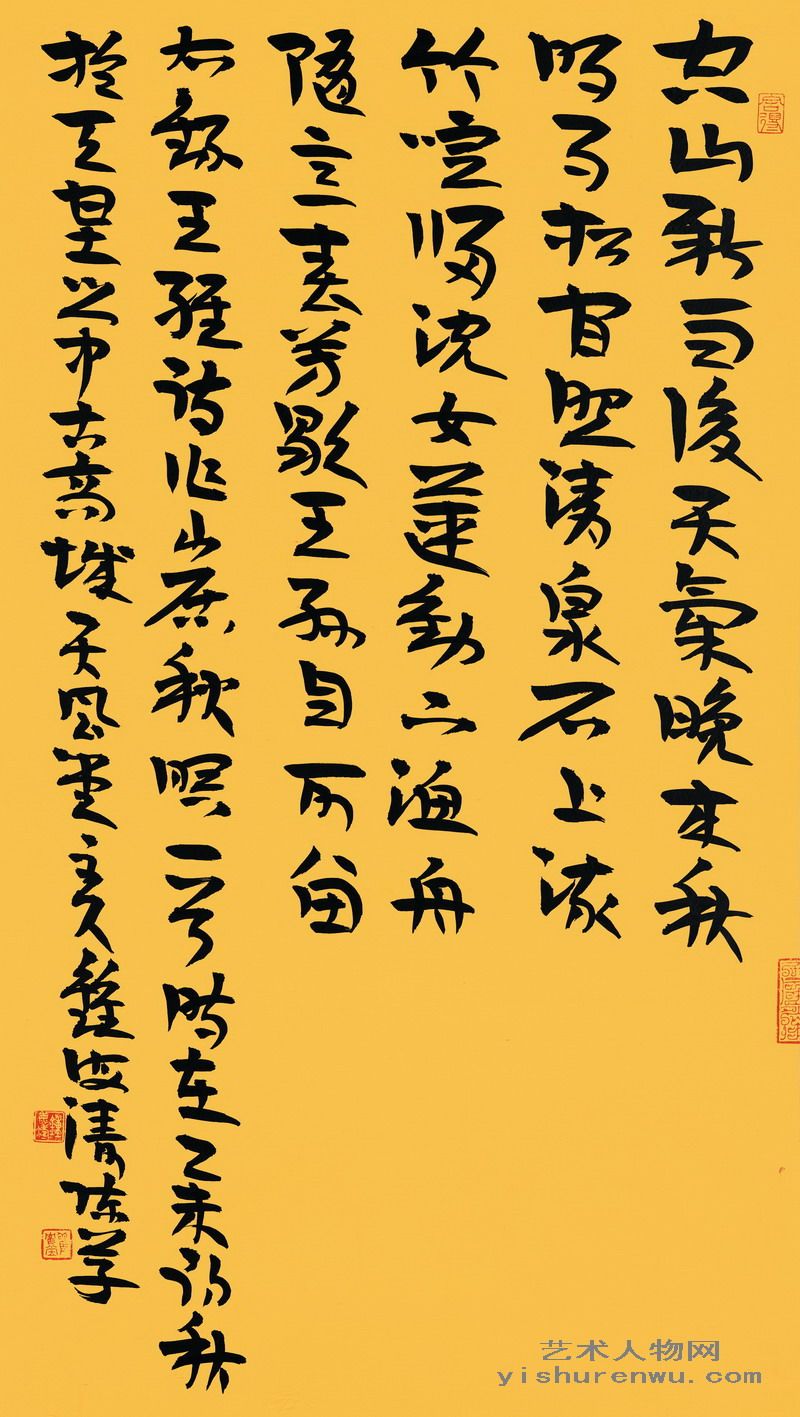 空山新雨後天氣晚来秋
明月松间照清泉石上流
竹喧歸浣女蓮動下漁舟
随意春芳歇王孙自可留
右録王維詩作山居秋暝一首時在乙未初秋
於天皇之中古商城天風堂主人鍾海清
艺术人物网
yishurenwu.com